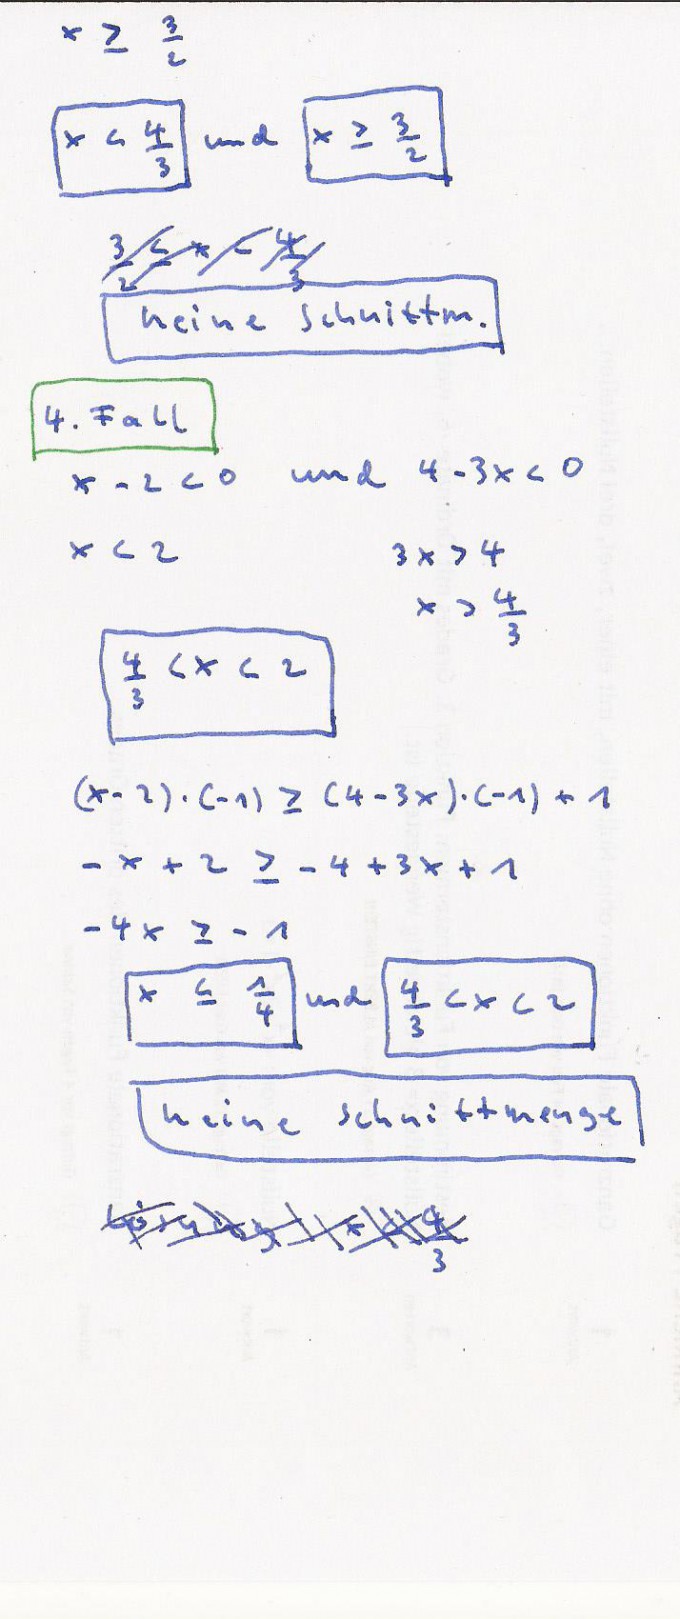 x ≥ 3/2
x < 4/3 und x ≥ 3/2
3/2 ≤ x < 4/3
keine Schnittm.
4. Fall
x - 2 < 0 und 4 - 3x < 0
x < 2 3x > 4
x > 4/3
4/3 < x < 2
(x - 2) · (-1) ≥ (4 - 3x) · (-1) + 1
- x + 2 ≥ - 4 + 3x + 1
- 4x ≥ - 1
x ≤ 1/4 und 4/3 < x < 2
keine Schnittmenge